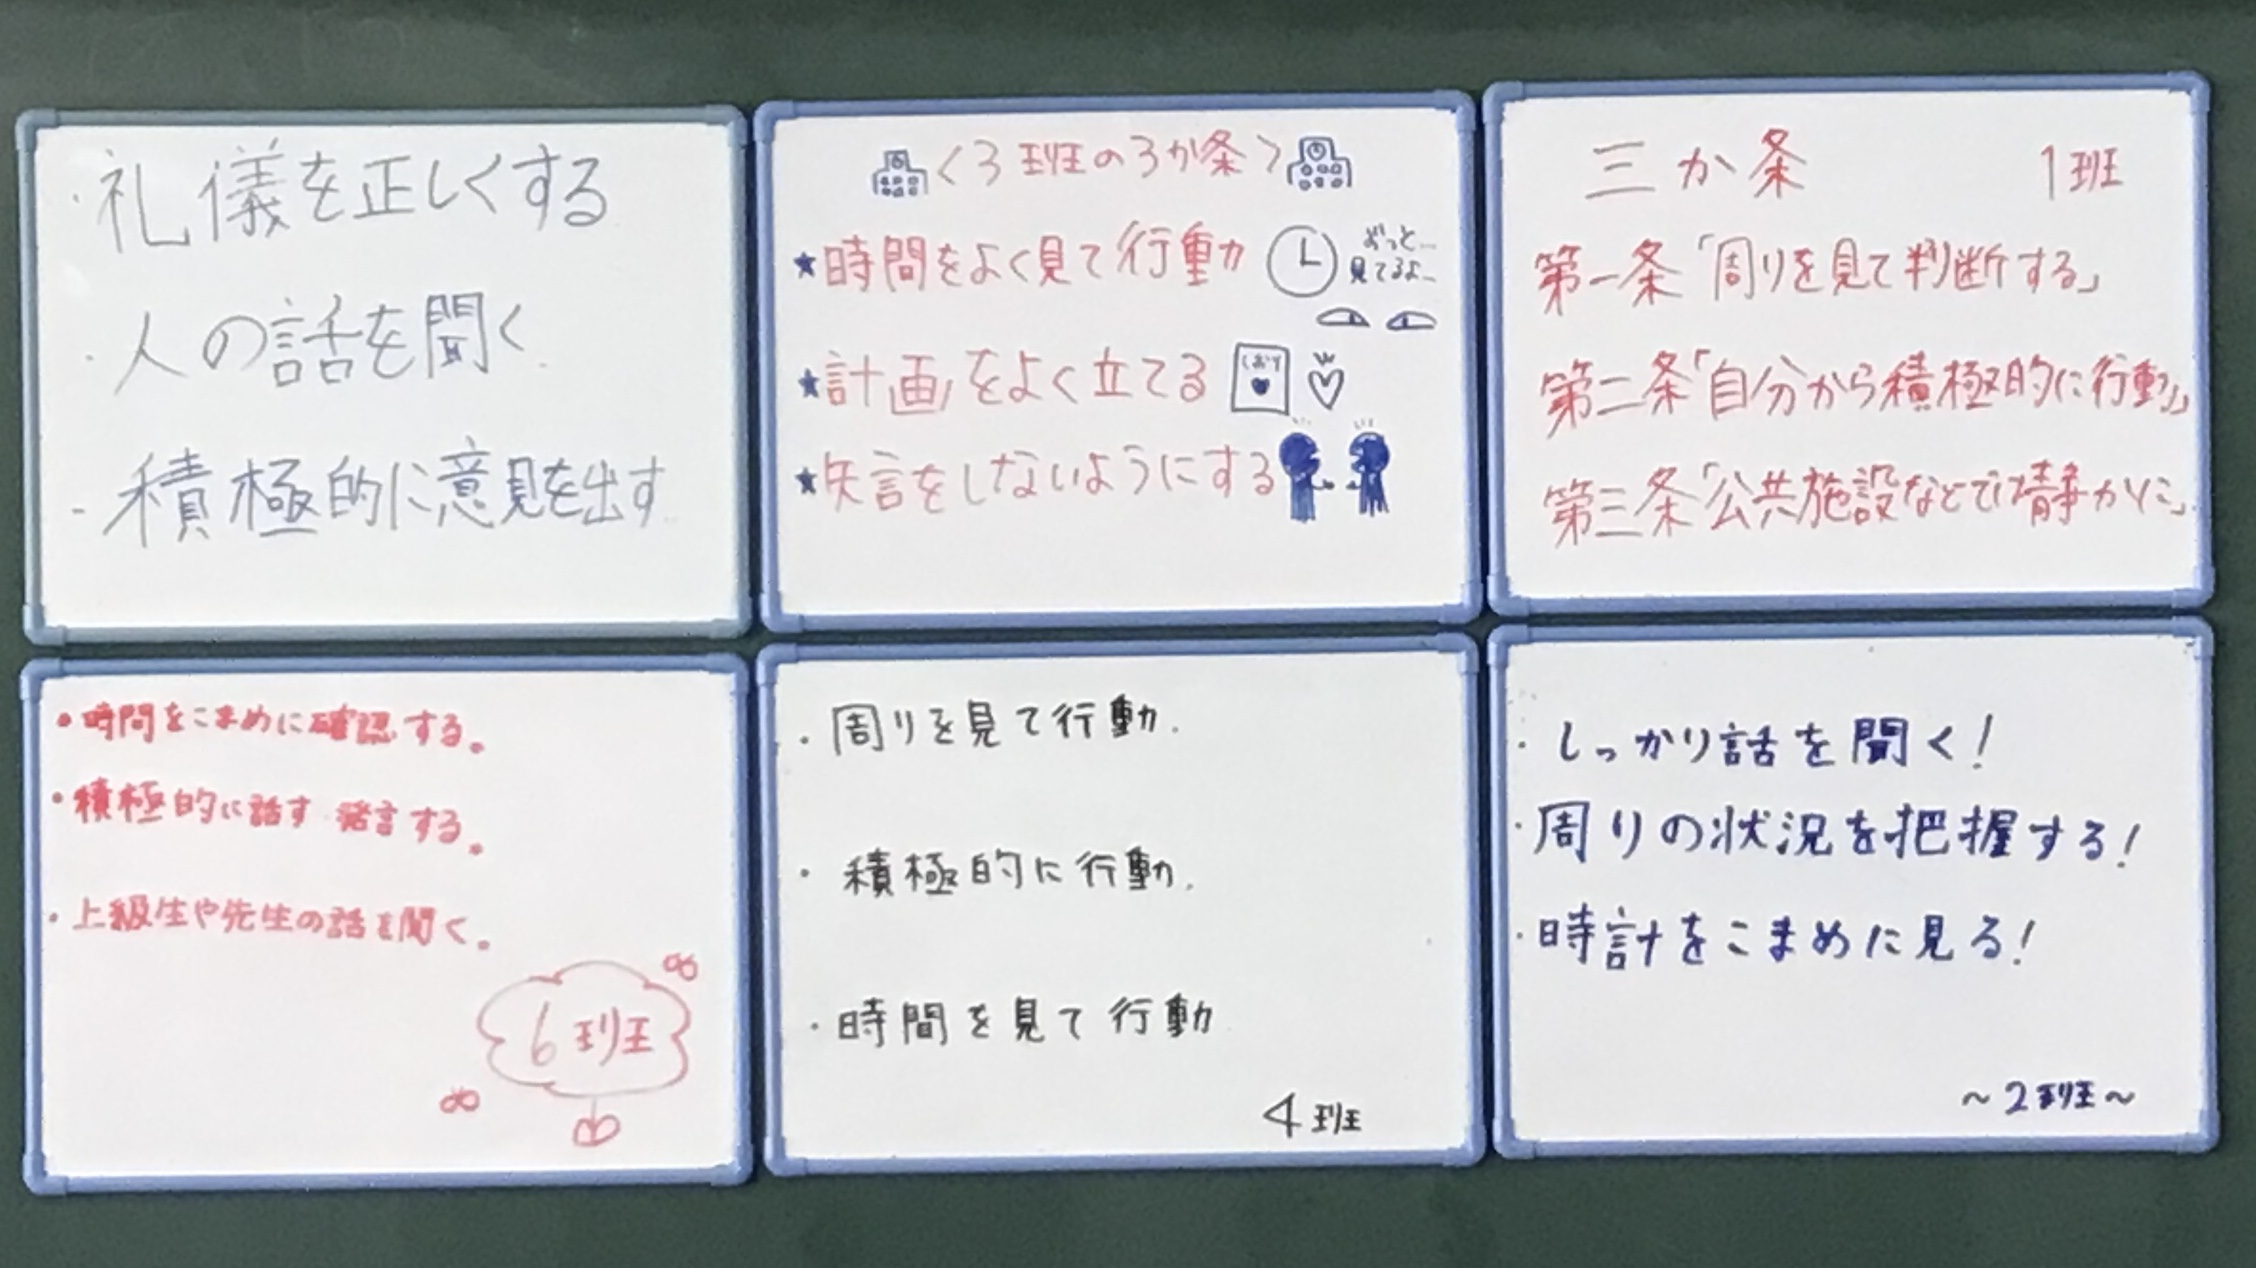 ・礼儀を正しくする
・人の話を聞く.
・積極的に意見を出す.
<3班の3か条>
★時間をよく見て行動
ずっと…
見てるよ…
★計画をよく立てる
しおり
★失言をしないようにする
三か条 1班
第一条「周りを見て判断する」
第二条「自分から積極的に行動」
第三条「公共施設などでは静かに」
・時間をこまめに確認する。
・積極的に話す 発言する。
・上級生や先生の話を聞く。
6班
・周りを見て行動.
・積極的に行動.
・時間を見て行動
4班
・しっかり話を聞く!
・周りの状況を把握する!
・時計をこまめに見る!
~2班~